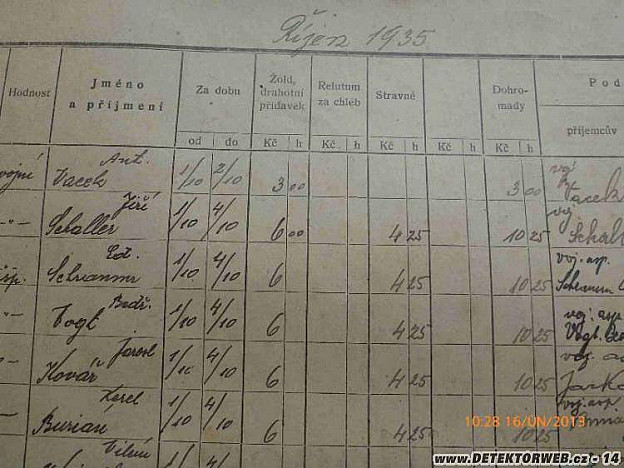 Říjen 1935
Hodnost Jméno a příjmení Za dobu od do Žold, drahotní přídavek Kč h Relutum za chléb Kč h Stravné Kč h Kč h Dohromady Kč h Pod
příjemcův
vojní Vacek Ant. 1/10 2/10 3 00 3 00 voj. Vacek
-"- Schaller Jiří 1/10 4/10 6 00 4 25 10 25 voj.
Schramm Ed. 1/10 4/10 6 4 25 10 25 voj. asp. Schramm
-"- Vogt Bedř. 1/10 4/10 6 4 25 10 25 voj. asp. Vogt
-"- Kovář Jarosl 1/10 4/10 6 4 25 10 25 voj.
-"- Burian Karel 1/10 4/10 6 4 25 10 25 voj. asp.
Vilém
10:28 16/JUN/2013
www.DETEKTORWEB.cz - 14